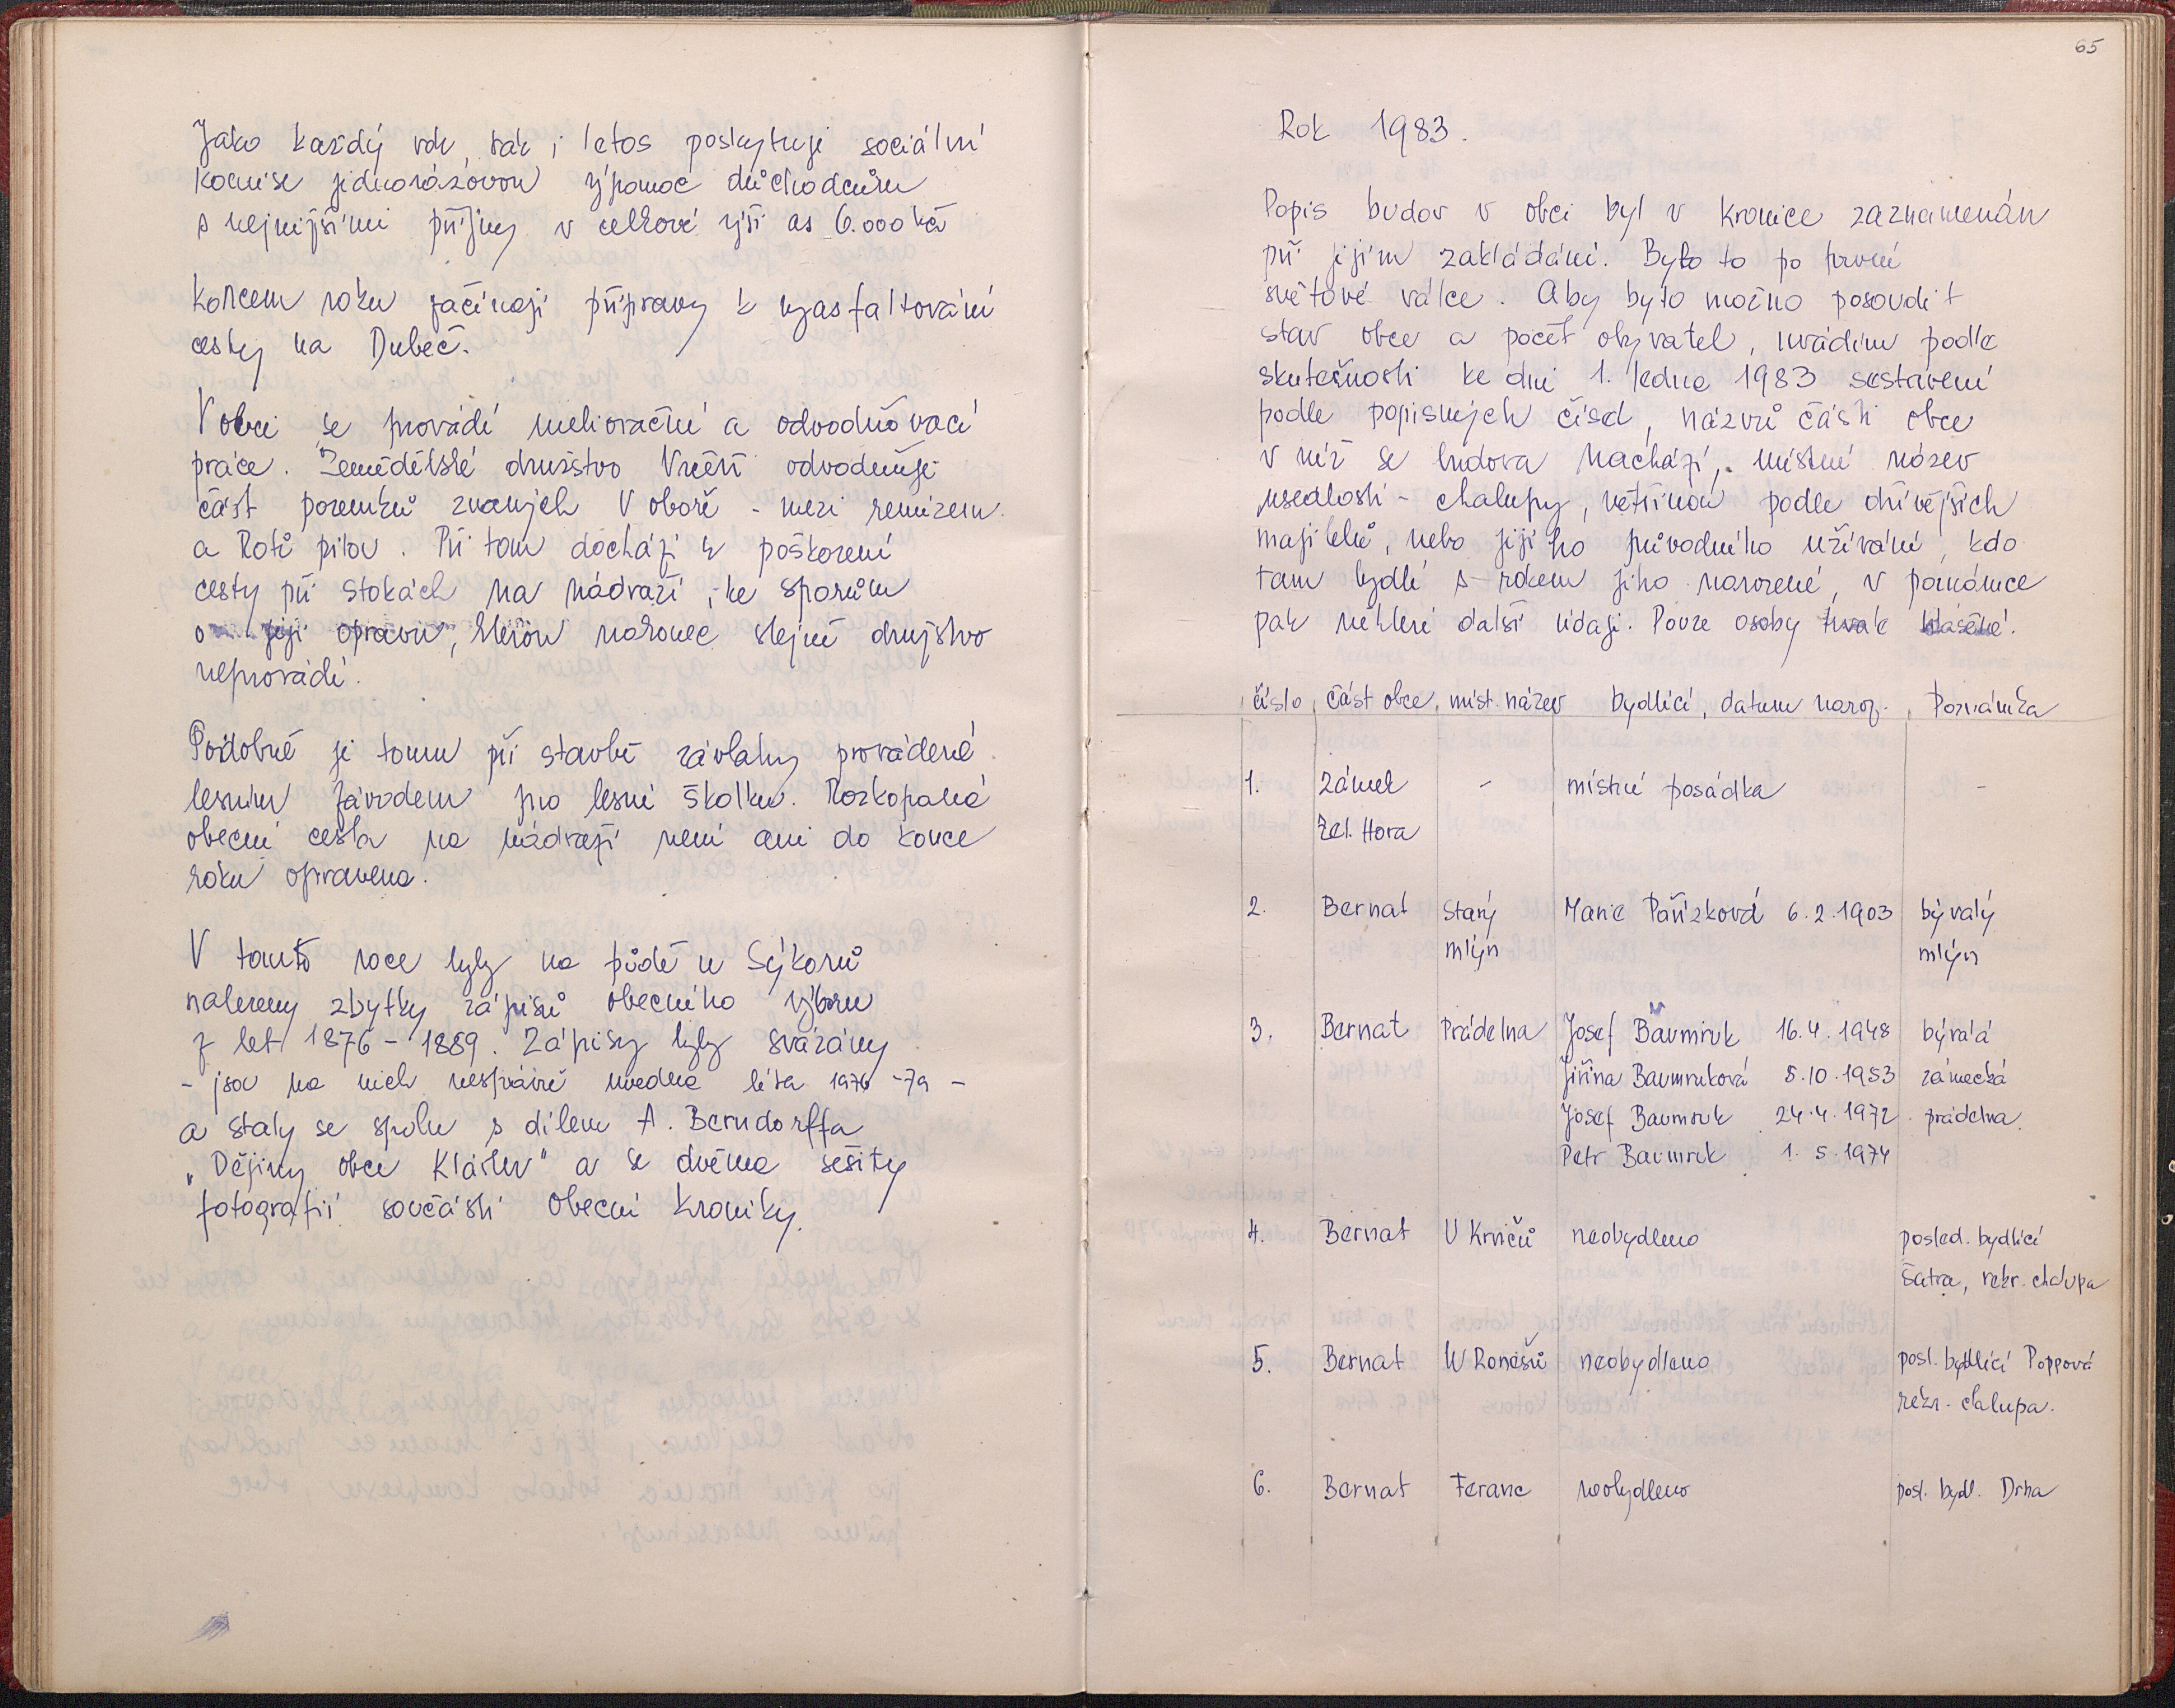 Jako každý rok, tak i letos poskytuje sociální
komise jednorázovou výpomoc důchodcům
s nejnižšími příjmy v celkové výši as 6.000 kčs
Koncem roku začínají přípravy k vyasfaltování
cesty na Dubeč.
V obci se provádí meliorační a odvodňovací
práce. Zemědělské družstvo Vrčeň odvodňuje
část pozemků zvaných V oboře - mezi remizem
a Rotí pilou. Při tom dochází k poškození
cesty při stokách na nádraží i ke sporům
o její opravu, kterou nakonec stejně družstvo
neprovádí.
Podobně je tomu při stavbě závlahy prováděné
lesním závodem pro lesní školku. Rozkopaná
obecní cesta na nádraží není ani do konce
roku opravena.
V tomto roce byly na půdě u Sýkorů
nalezeny zbytky zápisů obecního výboru
z let 1876 - 1889. Zápisy byly svázány
- jsou na nich nesprávně uvedena léta 1976 - 79 -
a staly se spolu s dílem A. Berndorffa
„Dějiny obce Klášter" a se dvěma sešity
fotografií součástí obecní kroniky.
65
Rok 1983.
Popis budov v obci byl v kronice zaznamenán
při jejím zakládání. Bylo to po první
světové válce. Aby bylo možno posoudit
stav obce a počet obyvatel, uvádím podle
skutečnosti ke dni 1. ledna 1983 sestavení
podle popisných čísel, názvů části obce
v níž se budova nachází, místní název
usedlosti - chalupy, většinou podle dřívějších
majitelů, nebo jejího původního užívání, kdo
tam bydlí s rokem jeho narození, v poznámce
pak některé další údaje. Pouze osoby trvale hlášené.
číslo část obce, míst. název bydlící, datum naroz. Poznámka
1. zámek - místní posádka -
Zel. Hora
2. Bernat starý Marie Pařízková 6.2.1903 bývalý
mlýn mlýn
3. Bernat Prádelna Josef Baumruk 16.4.1948 bývalá
Jiřina Baumruková 8.10.1953 zámecká
Josef Baumruk 24.4.1972 prádelna.
Petr Baumruk 1.5.1974
4. Bernat U Krnčů neobydleno posled. bydlící
Šatra, rekr. chalupa
5. Bernat U Ronešů neobydleno posl. bydlící Poppová
rekr. chalupa.
6. Bernat Feranc neobydleno posl. bydl. Drha